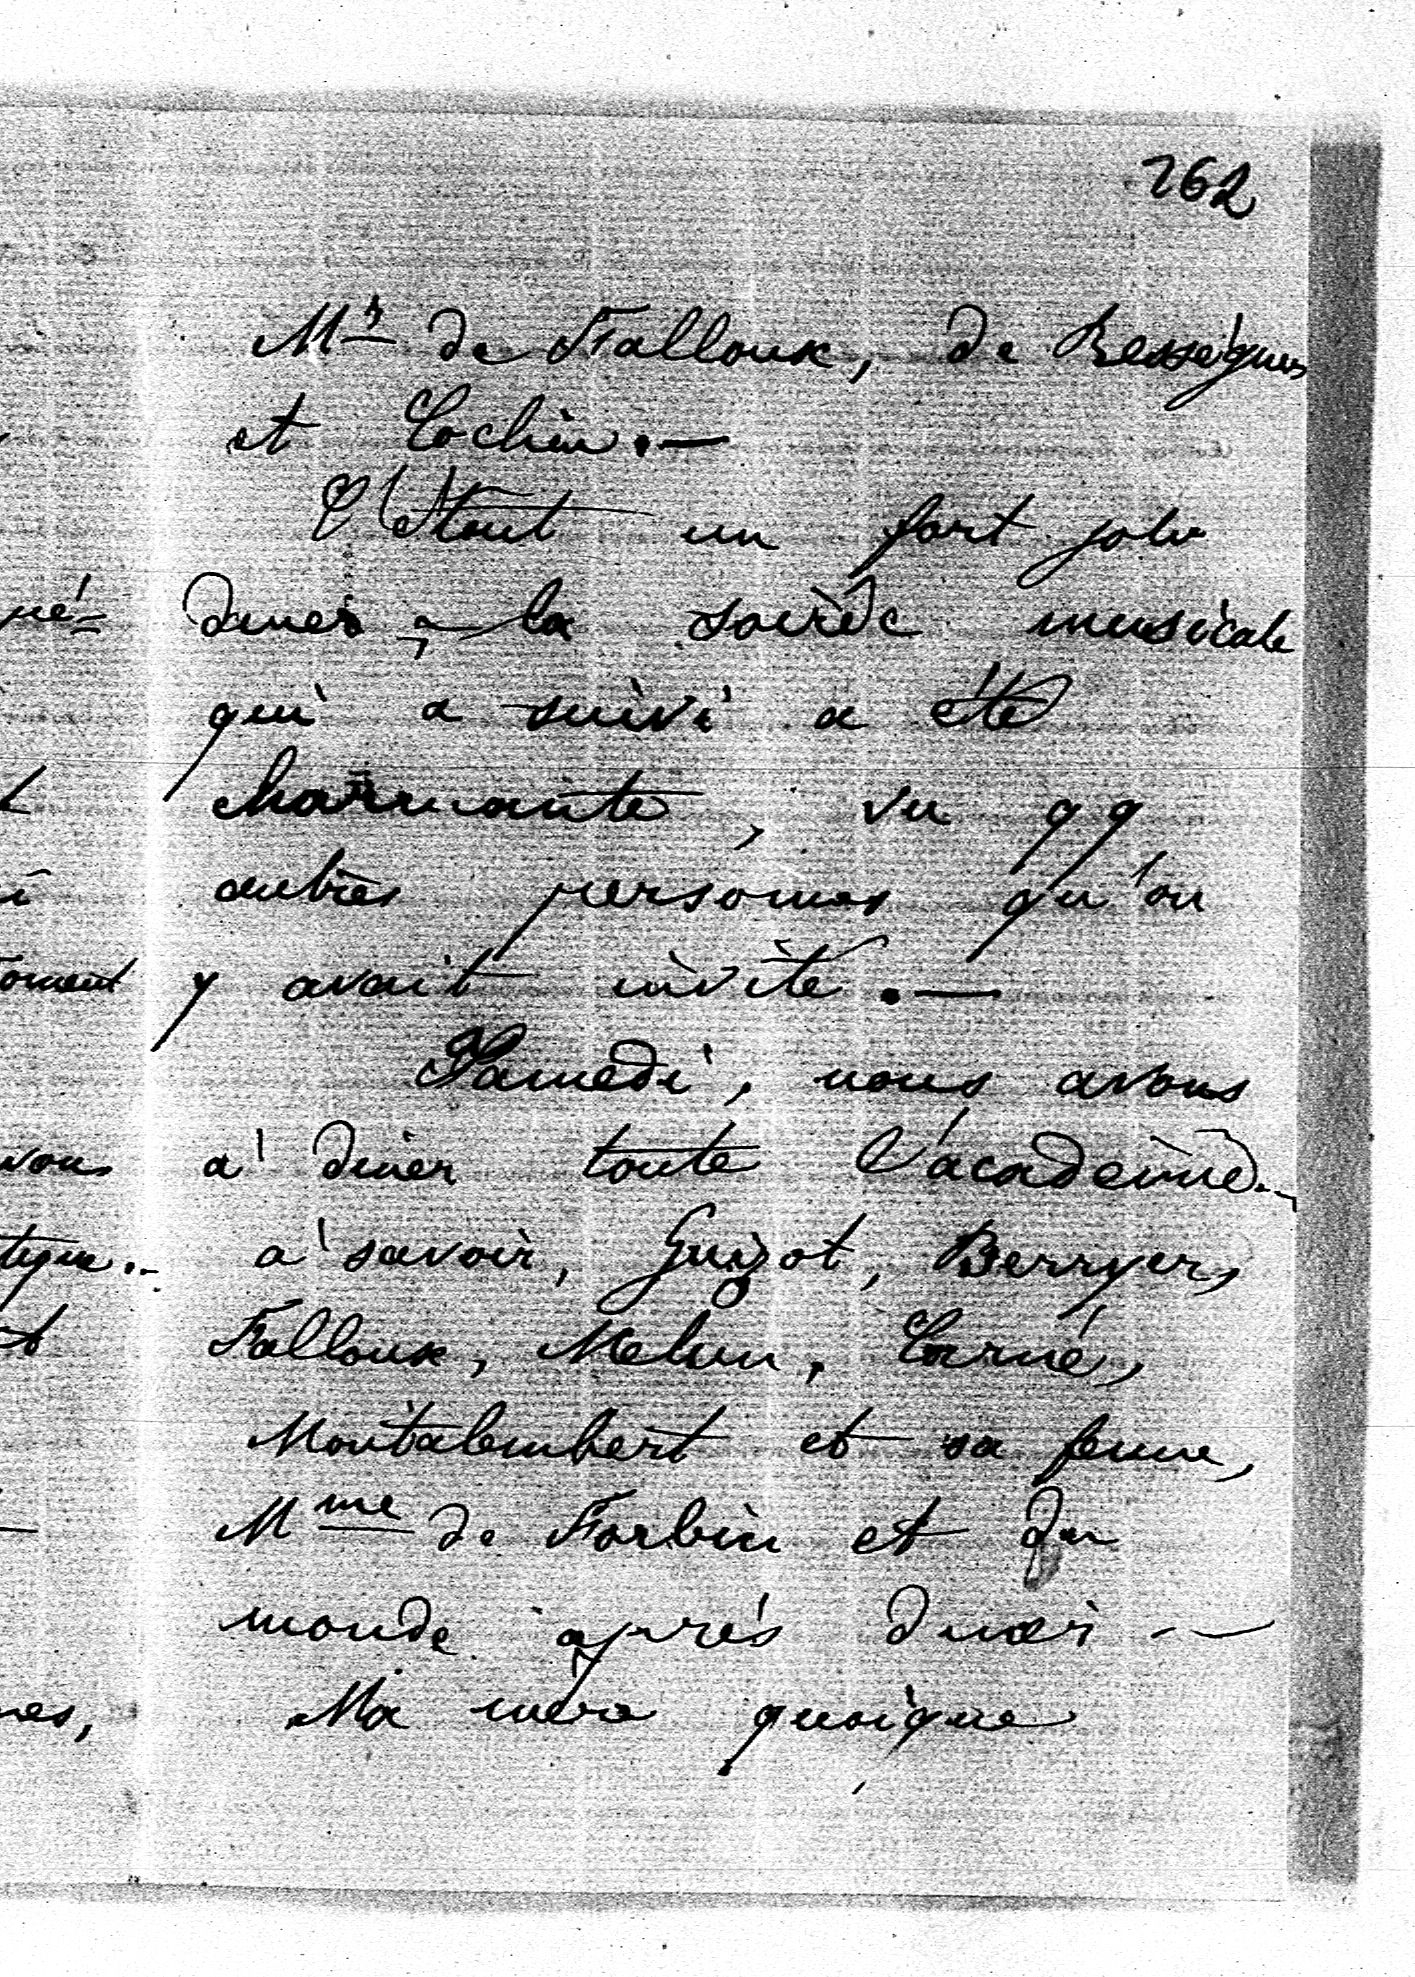 262
Mrs de Falloux, de Rességuier
et Cochin. —
C'était un fort joli
diner, — la soirée musicale
qui a suivi a été
charmante, vu qq
autres personnes qu'on
y avait invité. —
Samedi, nous avons
à diner toute l'académie. —
à savoir, Guizot, Berryer,
Falloux, Melun, Carné,
Montalembert et sa femme,
Mme de Forbin et du
monde après diner. —
Ma mère quoique